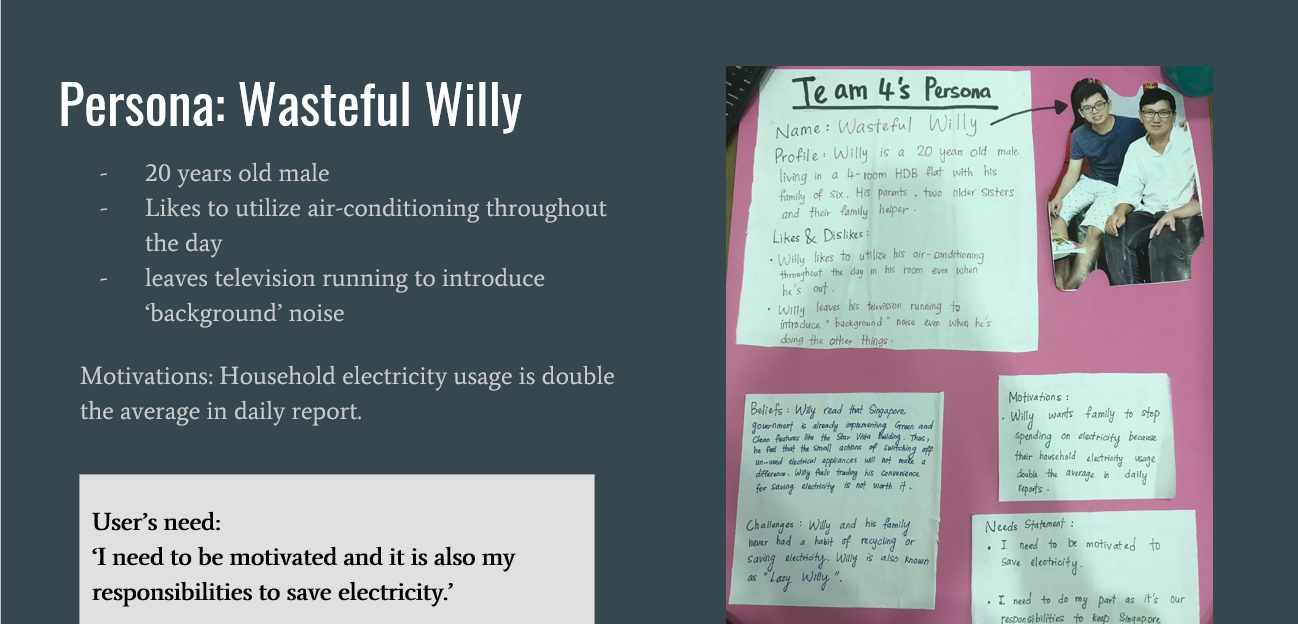 Persona: Wasteful Willy
- 20 years old male
- Likes to utilize air-conditioning throughout
the day
- leaves television running to introduce
‘background’ noise
Motivations: Household electricity usage is double
the average in daily report.
User’s need:
‘I need to be motivated and it is also my
responsibilities to save electricity.’
Team 4's Persona
Name: Wasteful Willy
Profile: Willy is a 20 years old male
living in a 4-room HDB flat with his
family of six. His parents, two older sisters
and their family helper.
Likes & Dislikes:
• Willy likes to utilize his air-conditioning
throughout the day in his room even when
he's out.
• Willy leaves his television running to
introduce "background" noise even when he's
doing the other things.
Beliefs: Willy read that Singapore
government is already implementing Green and
Clean features like the Star Vista Building. Thus,
he feel that the small actions of switching off
un-used electrical appliances will not make a
difference. Willy feels trading his convenience
for saving electricity is not worth it.
Challenges: Willy and his family
never had a habit of recycling or
saving electricity. Willy is also known
as "Lazy Willy".
Motivations:
• Willy wants family to stop
spending on electricity because
their household electricity usage
double the average in daily
reports.
Needs Statement:
• I need to be motivated to
save electricity.
• I need to do my part as it's our
responsibilities to keep Singapore